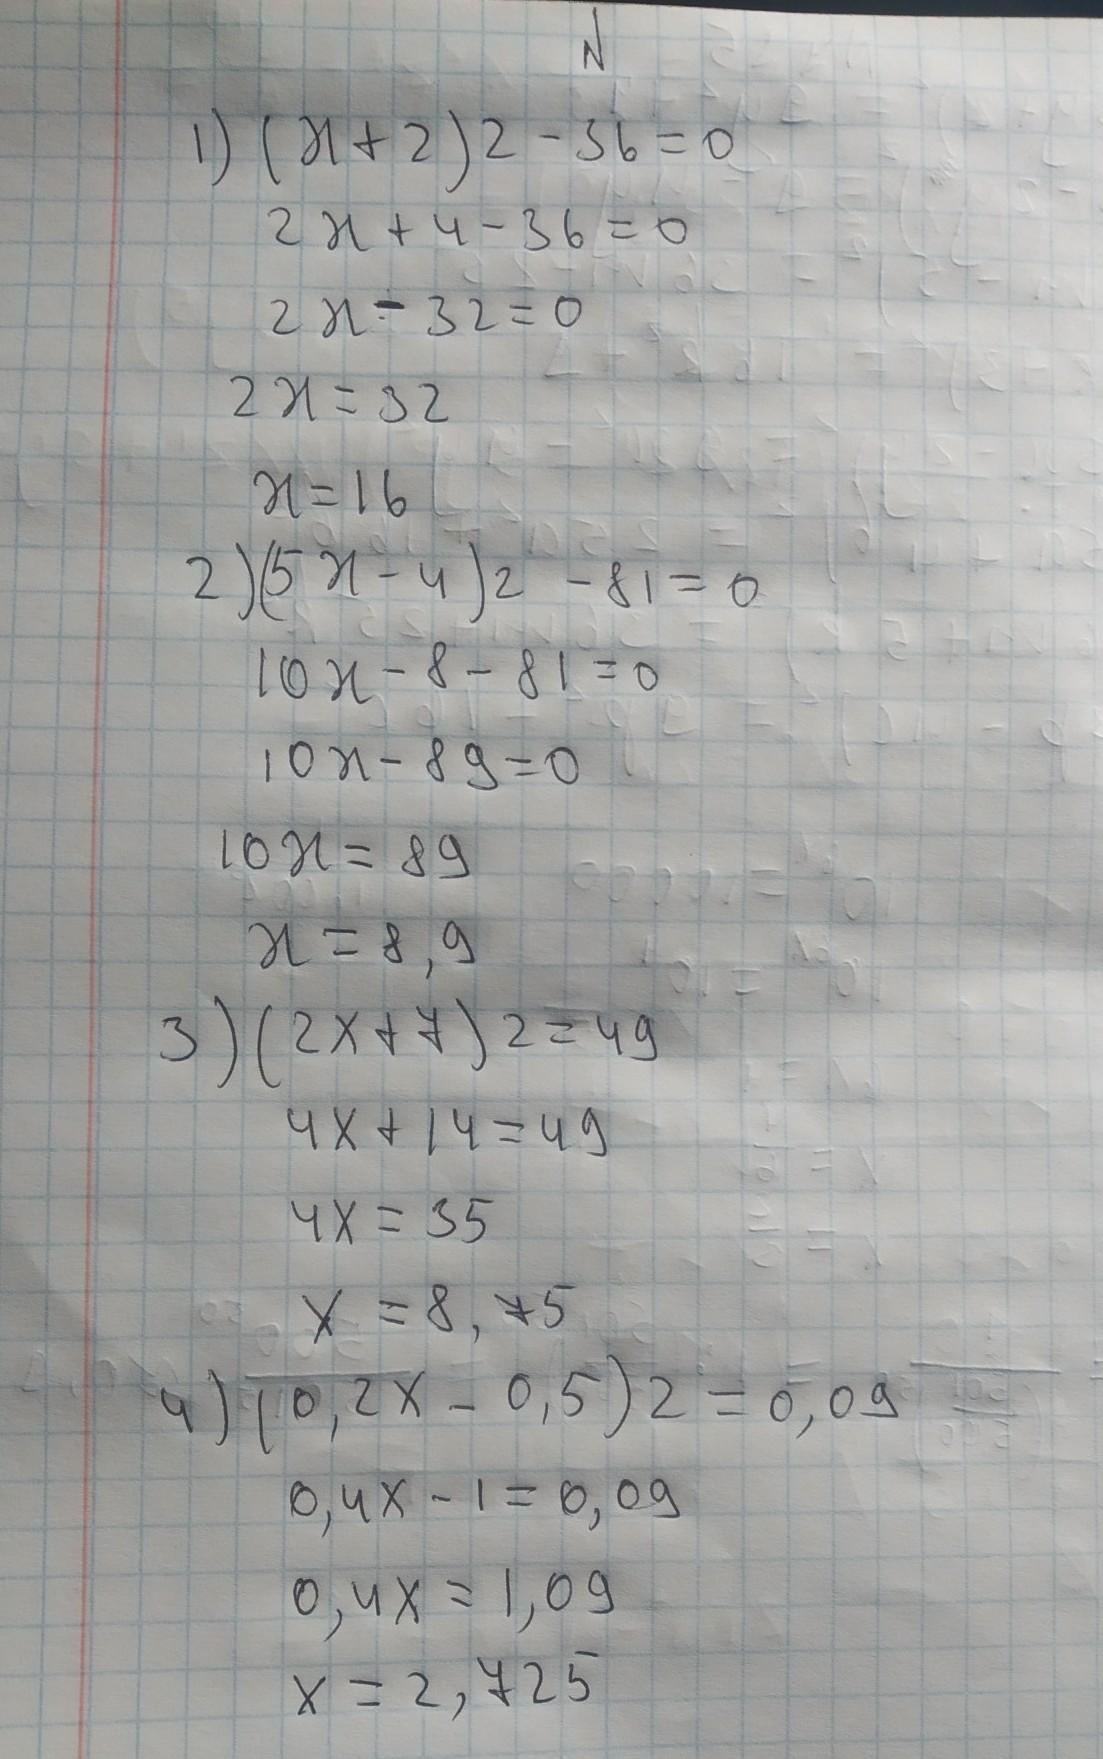 N
1) (x+2)2-36=0
2x+4-36=0
2x-32=0
2x=32
x=16
2) (5x-4)2-81=0
10x-8-81=0
10x-89=0
10x=89
x=8,9
3) (2x+7)2=49
4x+14=49
4x=35
x=8,75
4) (0,2x-0,5)2=0,09
0,4x-1=0,09
0,4x=1,09
x=2,725